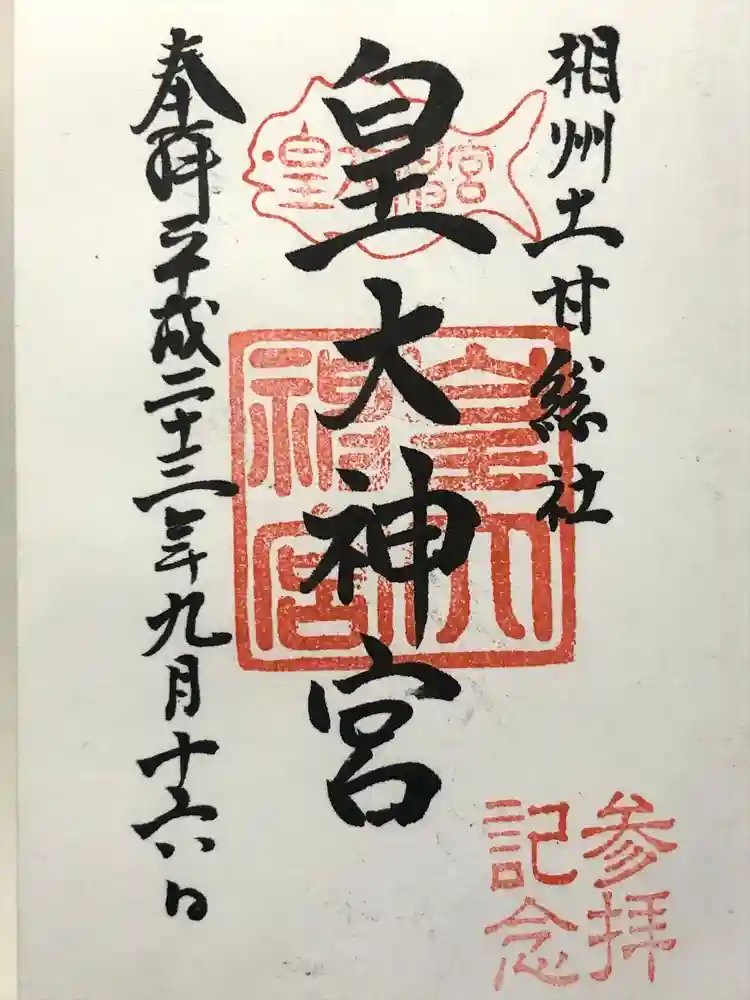 相州土甘総社
皇大神宮
奉拝 平成二十三年九月十六日
皇大神宮
皇大神宮
参拝
記念